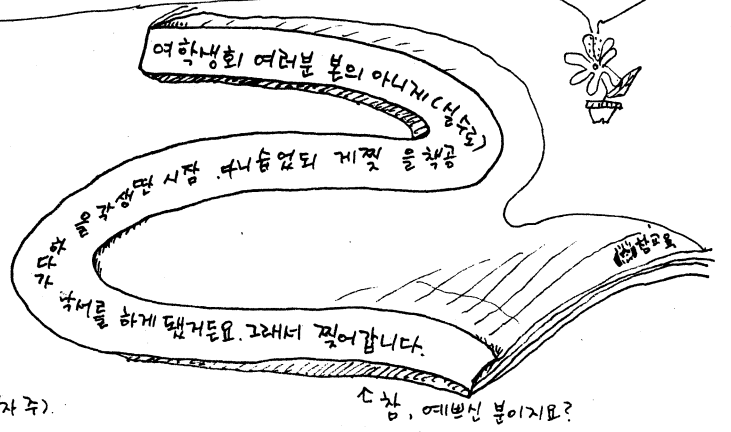 여학생회 여러분 본의 아니게(실수로)
공책을 찢게 되었습니다. 잠시 딴생각을
하다가
낙서를 하게 됐거든요. 그래서 찢어갑니다.
참교육
↑참, 예쁘신 분이지요?
자주).